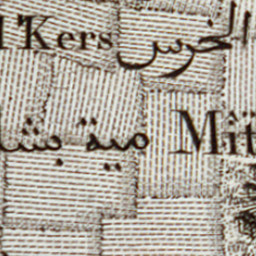 l'Kers الخرس
مية بشا Mit